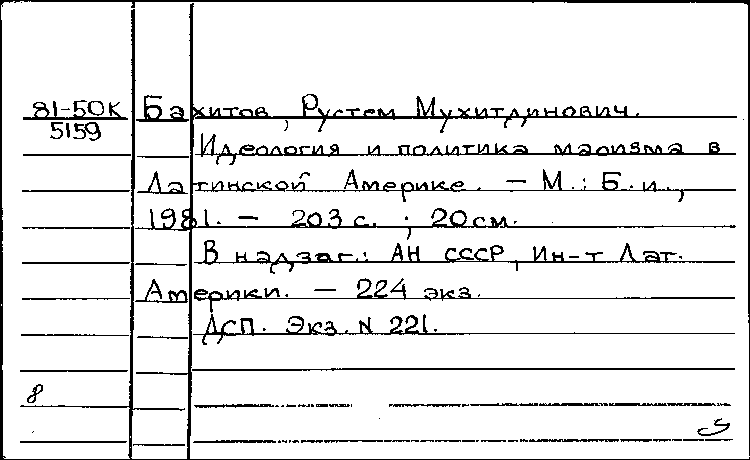 81-50К Бахитов, Рустем Мухитдинович.
5159
Идеология и политика маоизма в
Латинской Америке. – М.: Б.и.,
1981. – 203 с. ; 20 см.
В надзаг.: АН СССР, Ин-т Лат.
Америки. – 224 экз.
ДСП. Экз. N 221.
8